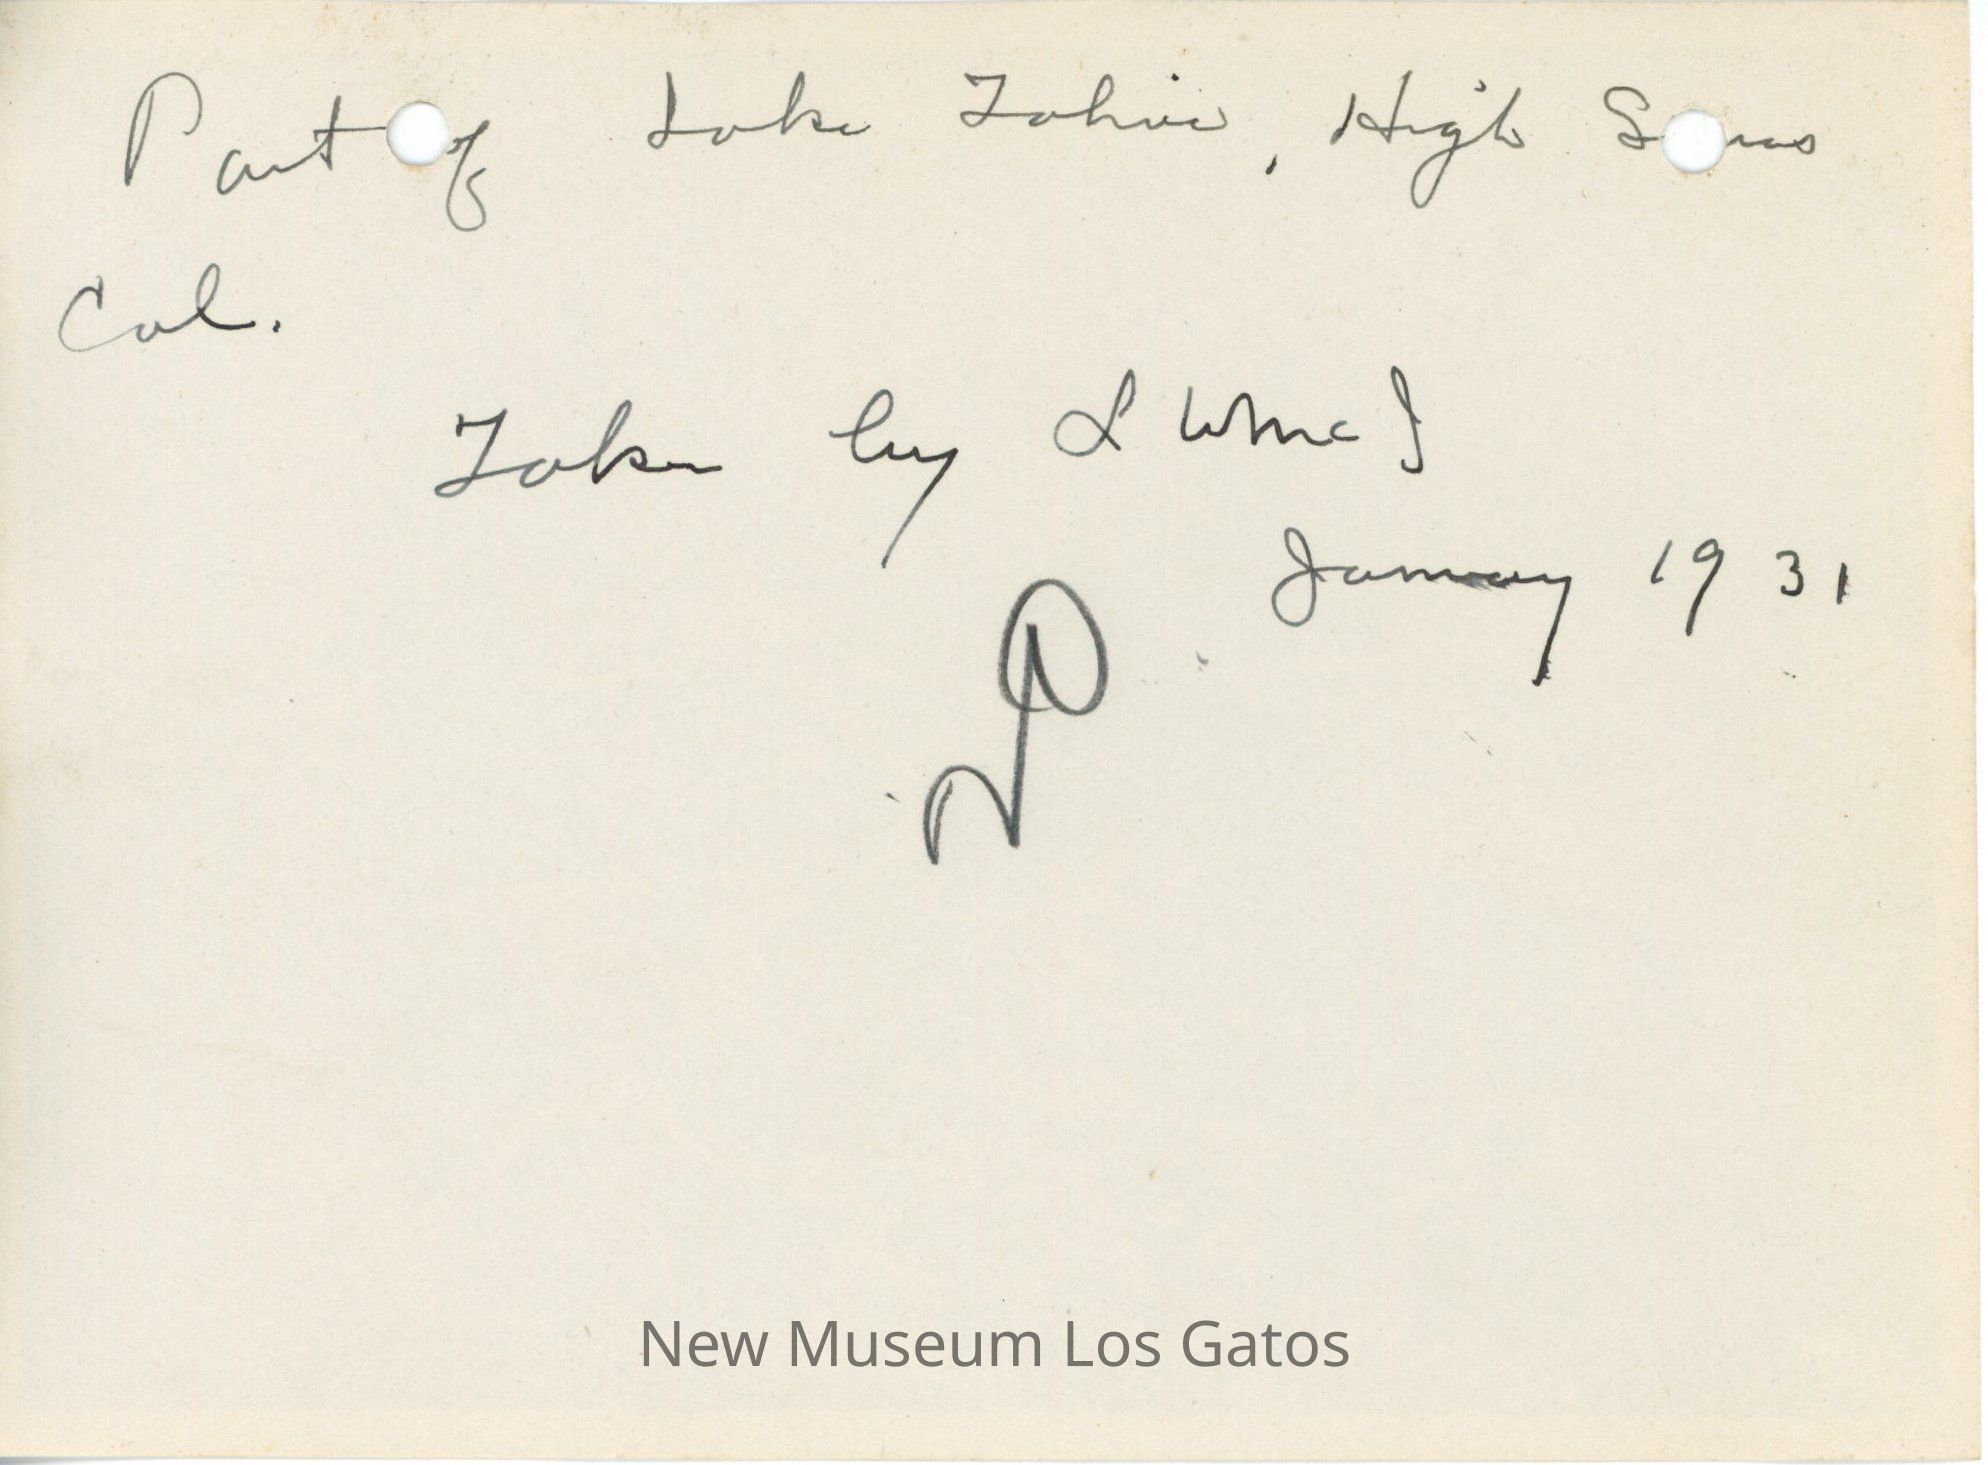 Part of Lake Tahoe, High Sierras
Cal.
Taken by L W Mc
January 1931
New Museum Los Gatos